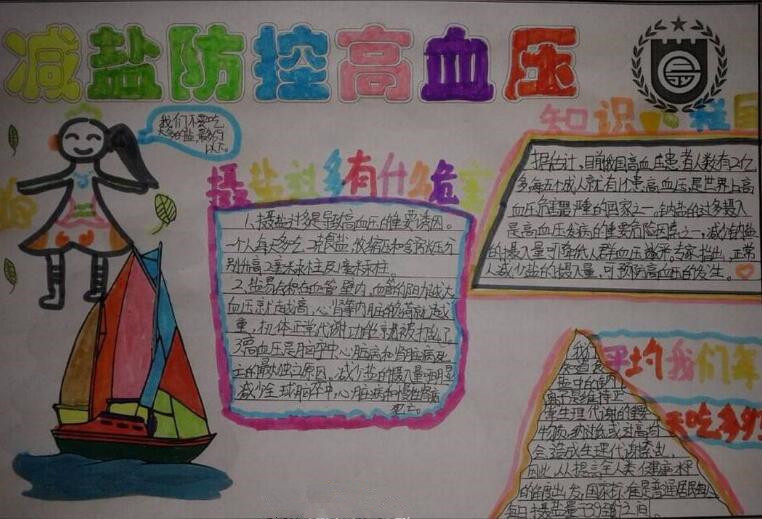 减盐防控高血压
我们不要吃
太多的盐,最多6g
以下。
知识
摄盐过多有什么危害
1、摄盐过多是导致高血压的重要诱因。
一个人每天多吃2克食盐,收缩压和舒张压分
别升高2毫米汞柱及1毫米汞柱。
2、盐易沉积在血管壁内,血管的阻力越大,
血压就越高,心肾等内脏的负荷就越
重,机体正常代谢功能就被打破了
3、高血压是脑卒中心脏病和肾脏病发
生的最大独立原因,减少盐的摄入量可明显
减少全球脑卒中心脏病和慢性肾病
死亡。
据估计,目前我国高血压患者人数有2亿
多,每五个成人就有1个患高血压,是世界上高
血压危害最严重的国家之一。钠盐的过多摄入
是高血压发病的重要危险因素之一,减少钠盐
的摄入量可降低人群血压水平。专家指出,正常
人减少盐的摄入量,可预防高血压的发生。
平均我们每
天吃多少
我
知道食
盐中的钠
离子是维持正
常生理代谢的重要
物质,钠过低或过高均
会造成生理代谢紊乱。
因此,从提高全人类健康水平
的角度出发,国家标准是普通居民每人
每日摄盐量于3-9克之间。